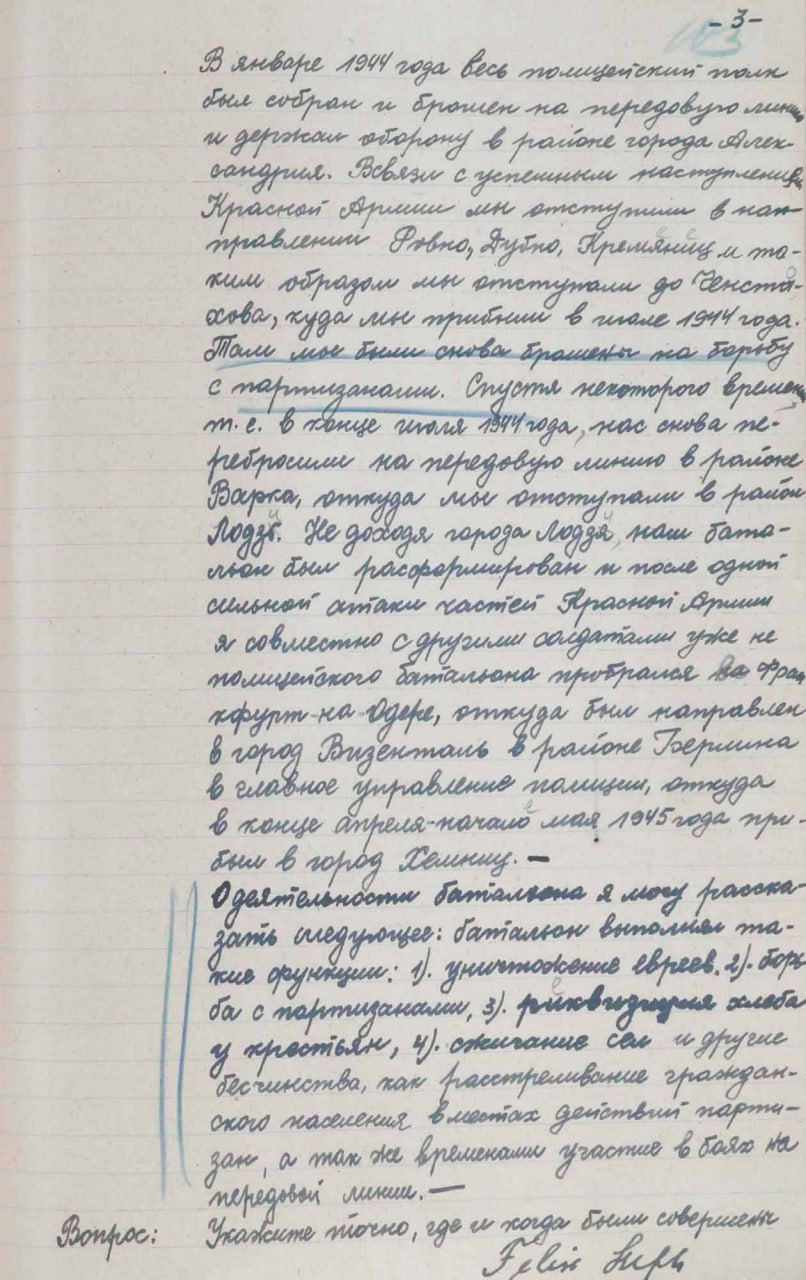 -3-
В январе 1944 года весь полицейский полк
был собран и брошен на передовую линию
и держал оборону в районе города Алек-
сандрия. Всвязи с успешным наступлением
Красной Армии мы отступили в нап-
правлении Ровно, Дубно, Кремяниц и та-
ким образом мы отступали до Ченста-
хова, куда мы прибыли в июле 1944 года.
Там мы были снова брошены на борьбу
с партизанами. Спустя некоторого времени
т.е. в конце июля 1944 года, нас снова пе-
ребросили на передовую линию в районе
Варка, откуда мы отступали в район
Лодзь. Не доходя города Лодзя, наш бата-
льон был расформирован и после одной
сильной атаки частей Красной Армии
я совместно с другими солдатами уже не
полицейского батальона пробрался во Фран
кфурт-на Одере, откуда был направлен
в город Визенталь в районе Берлина
в главное управление полиции, откуда
в конце апреля-начале мая 1945 года при-
был в город Хемниц. —
О деятельности батальона я могу расска-
зать следующее: батальон выполнял та-
кие функции: 1). уничтожение евреев, 2). борь
ба с партизанами, 3). реквизиция хлеба
у крестьян, 4). сжигание сел и другие
бесчинства, как расстреливание граждан-
ского населения вместах действий парти-
зан, а так же временами участие в боях на
передовой линии. —
Вопрос: Укажите точно, где и когда были совершены
Felix